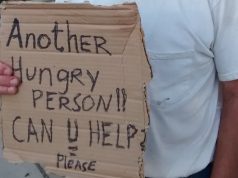 Another
Hungry
PERSON!!
CAN U HELP?
Please